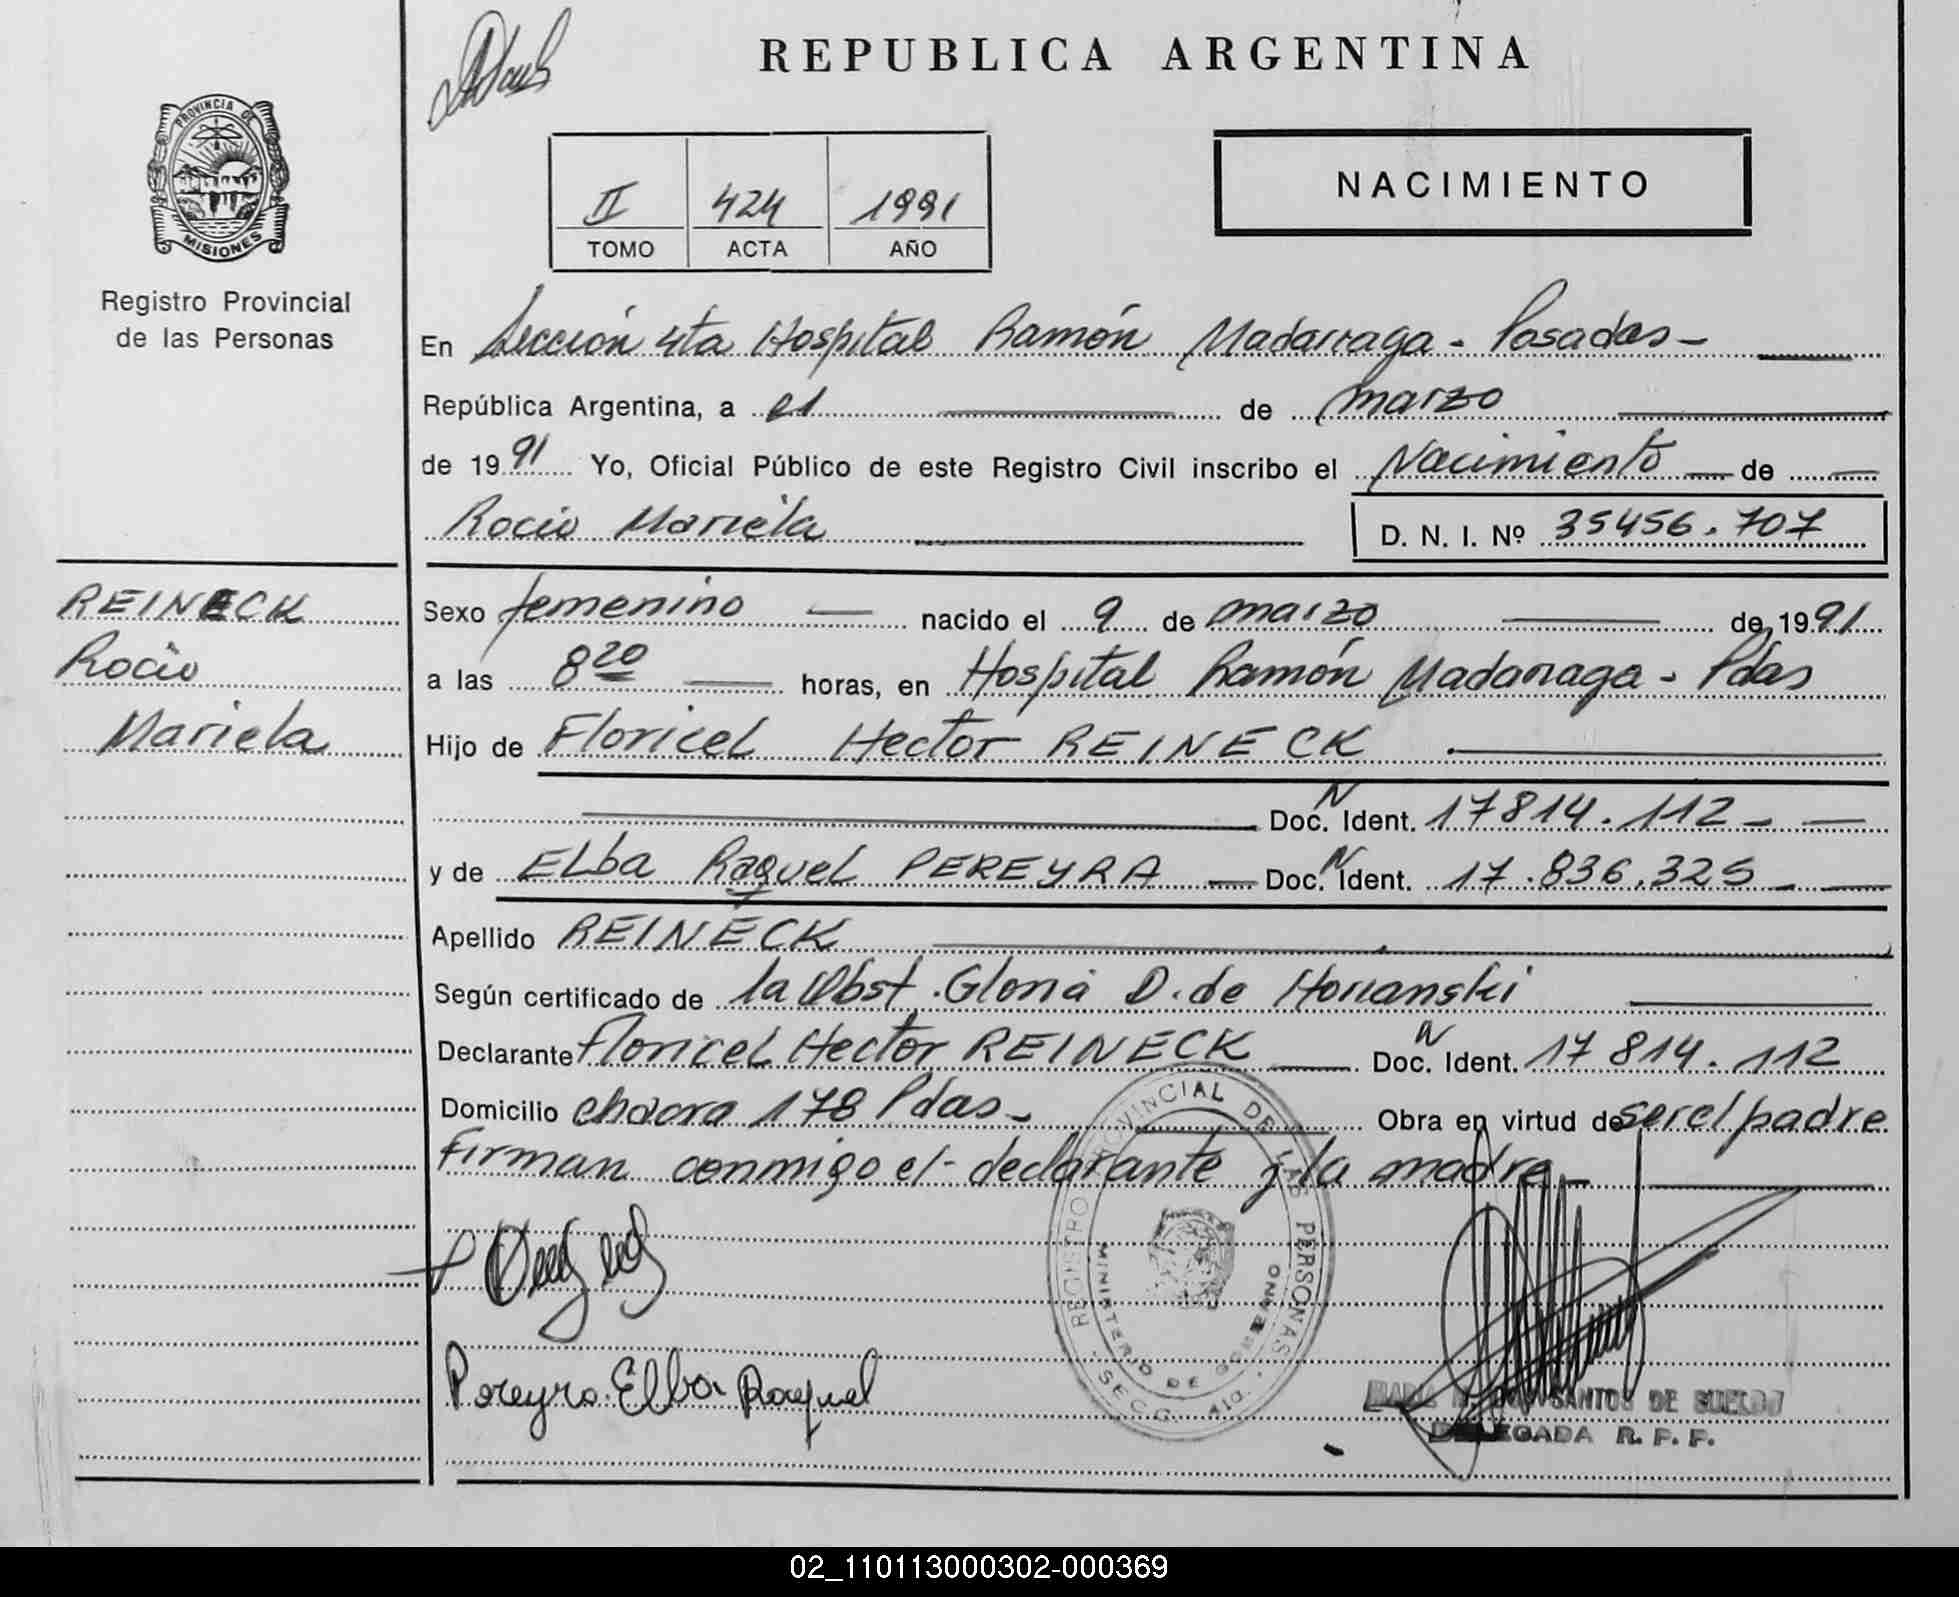 REPUBLICA ARGENTINA
PROVINCIA DE
MISIONES
Registro Provincial
de las Personas
II 424 1991
TOMO ACTA AÑO
NACIMIENTO
En Sección 4ta Hospital Ramón Madarraga - Posadas -
República Argentina, a 21 de marzo
de 1991 Yo, Oficial Público de este Registro Civil inscribo el Nacimiento de
Rocio Mariela D. N. I. Nº 35456.707
REINECK
Rocio
Mariela
Sexo femenino nacido el 9 de marzo de 1991
a las 8 20 horas, en Hospital Ramón Madarraga - Pdas
Hijo de Floricel Hector REINECK
Doc. N Ident. 17814.112 -
y de ELba Raquel PEREYRA Doc. N Ident. 17.836.325 -
Apellido REINECK
Según certificado de la Obst. Gloria D. de
Declarante Floricel Hector REINECK Doc. N Ident. 17 814.112
Domicilio chacra 178 Pdas - Obra en virtud de ser el padre
Firman conmigo el declarante y la madre -
REGISTRO PROVINCIAL DE LAS PERSONAS
MINISTERIO DE GOBIERNO
SECC. 4ta.
Pereyra Elba Raquel
SANTOS DE
DELEGADA R. P. P.
02_110113000302-000369